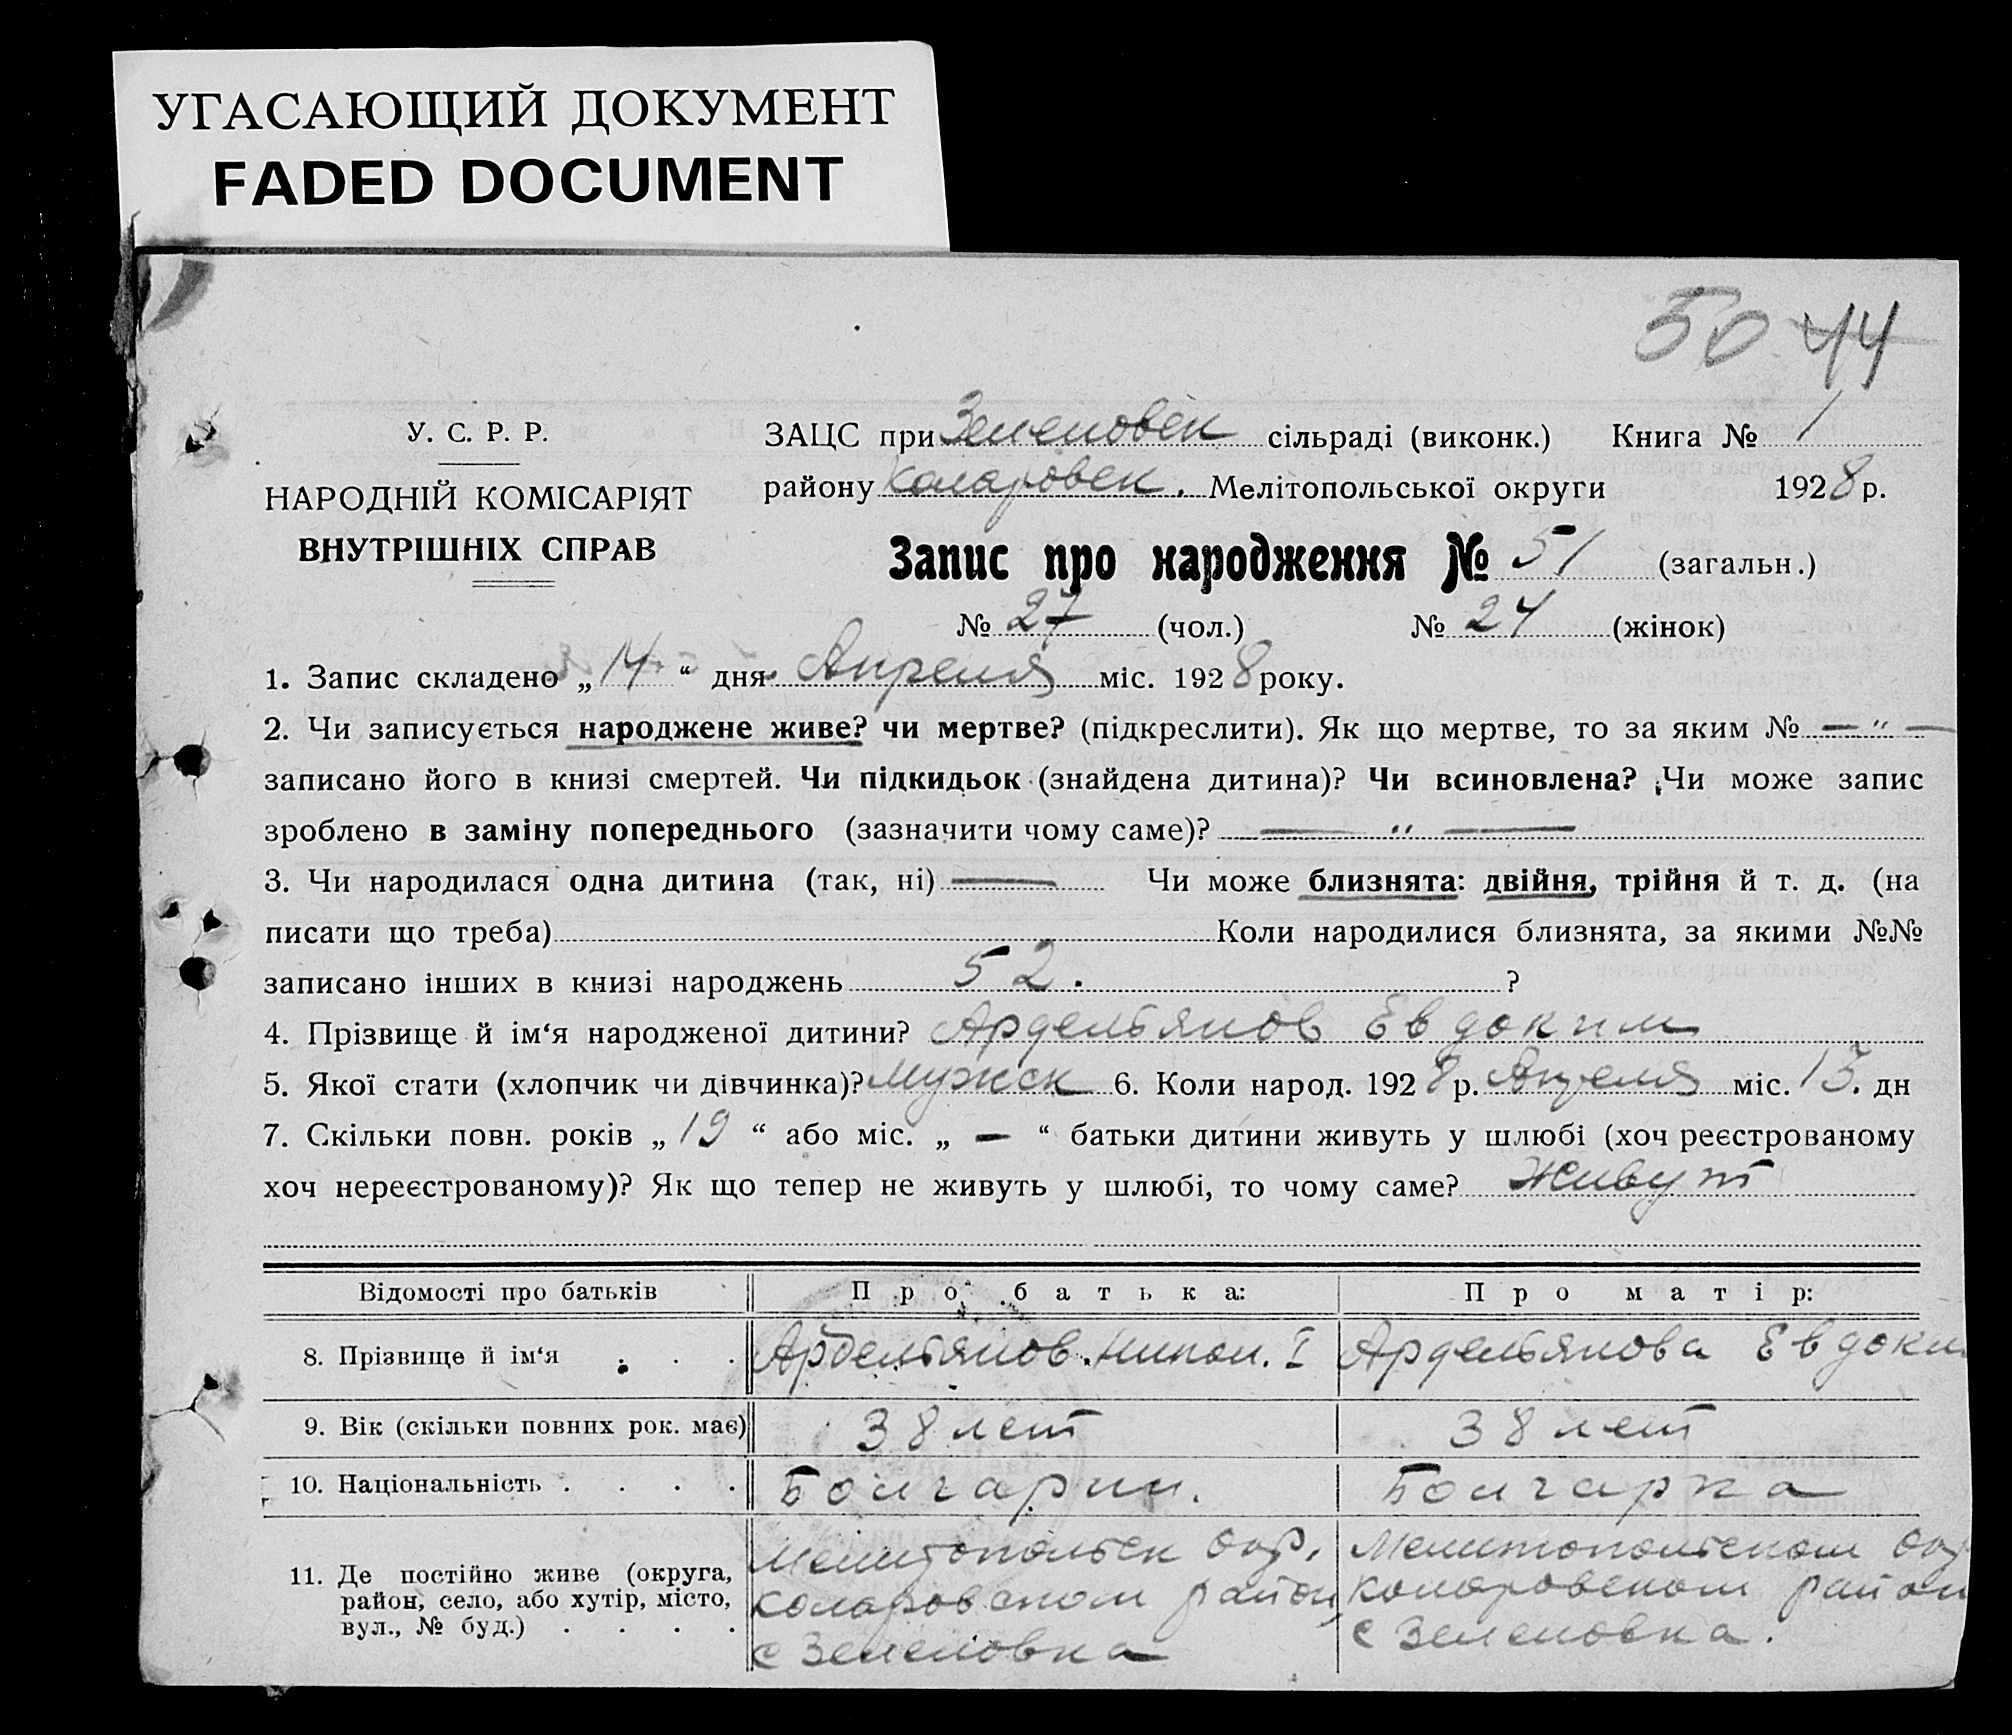 УГАСАЮЩИЙ ДОКУМЕНТ
FADED DOCUMENT
50 44
У. С. Р. Р.
НАРОДНІЙ КОМІСАРІЯТ
ВНУТРІШНІХ СПРАВ
ЗАЦС при Зеленовск сільраді (виконк.) Книга № 1
району Коларовск. Мелітопольської округи 1928 р.
Запис про народження № 51 (загальн.)
№ 27 (чол.) № 24 (жінок)
1. Запис складено „ 14 “ дня Апреля міс. 1928 року.
2. Чи записується народжене живе? чи мертве? (підкреслити). Як що мертве, то за яким № — „ —
записано його в книзі смертей. Чи підкидьок (знайдена дитина)? Чи всиновлена? Чи може запис
зроблено в заміну попереднього (зазначити чому саме)? — „ —
3. Чи народилася одна дитина (так, ні) — Чи може близнята: двійня, трійня й т. д. (на
писати що треба) Коли народилися близнята, за якими №№
записано інших в книзі народжень 52. ?
4. Прізвище й ім‘я народженої дитини? Ардельянов Евдоким
5. Якої стати (хлопчик чи дівчинка)? Мужск 6. Коли народ. 1928 р. Апреля міс. 13. дн
7. Скільки повн. років „ 19 “ або міс. „ — “ батьки дитини живуть у шлюбі (хоч реєстрованому
хоч нереєстрованому)? Як що тепер не живуть у шлюбі, то чому саме? Живут
Відомості про батьків Про батька: Про матір:
8. Прізвище й ім‘я . . . Ардельянов. Никол. I Ардельянова Евдоким
9. Вік (скільки повних рок. має) 38 лет 38 лет
10. Національність . . . . Болгарин. Болгарка
11. Де постійно живе (округа, Мелитопольск окр. Мелитопольском окр
район, село, або хутір, місто, Коларовском район, Коларовском район
вул., № буд.) . . . . с Зеленовка с Зеленовка.